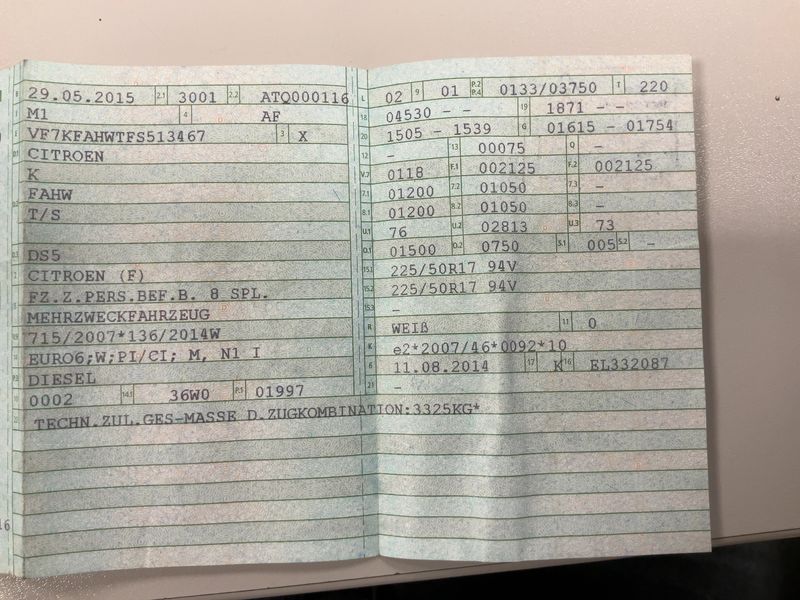 B 29.05.2015 2.1 3001 2.2 ATQ000116
M1 4 AF
E VF7KFAHWTFS513467 3 X
CITROEN
K
FAHW
T/S
DS5
CITROEN (F)
FZ.Z.PERS.BEF.B. 8 SPL.
MEHRZWECKFAHRZEUG
715/2007*136/2014W
EURO6;W;PI/CI; M, N1 I
DIESEL
0002 14.1 36W0 P.1 01997
TECHN.ZUL.GES-MASSE D.ZUGKOMBINATION:3325KG*
L 02 9 01 P.2 P.4 0133/03750 T 220
18 04530 - - 19 1871 - -
20 1505 - 1539 G 01615 - 01754
12 - 13 00075 Q -
V.7 0118 F.1 002125 F.2 002125
7.1 01200 7.2 01050 7.3 -
8.1 01200 8.2 01050 8.3 -
U.1 76 U.2 02813 U.3 73
O.1 01500 O.2 0750 S.1 005 S.2 -
15.1 225/50R17 94V
15.2 225/50R17 94V
15.3 -
R WEIß 11 0
K e2*2007/46*0092*10
6 11.08.2014 17 K 16 EL332087
21 -